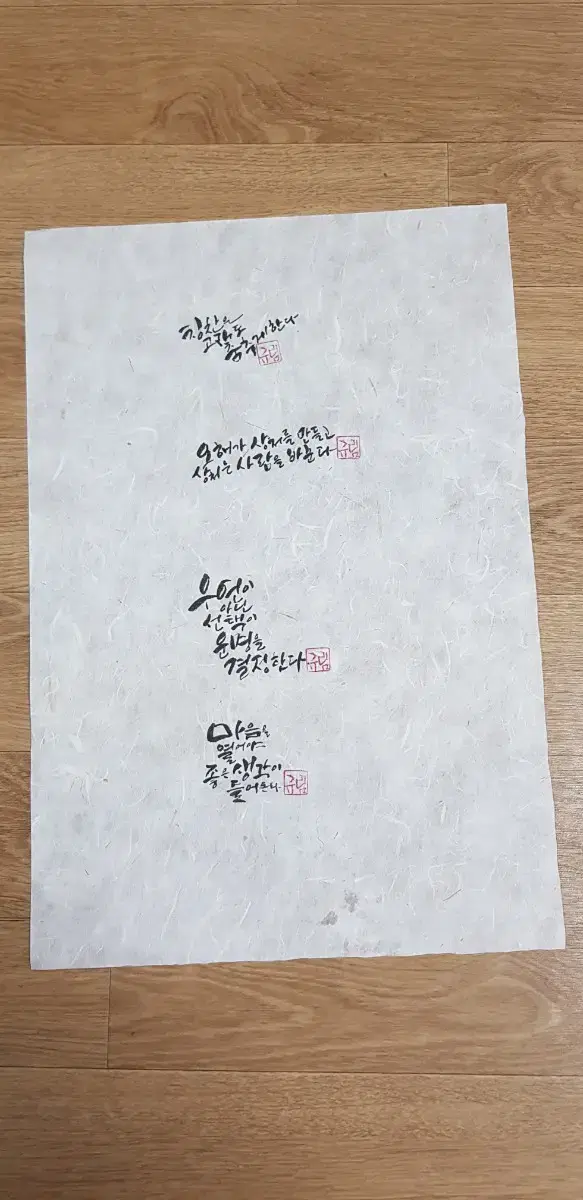 칭찬은
고래도
춤추게한다
오해가 상처를 만들고
상처는 사람을 바꾼다
우연이
아닌
선택이
운명을
결정한다
마음을
열어야
좋은 생각이
들어온다